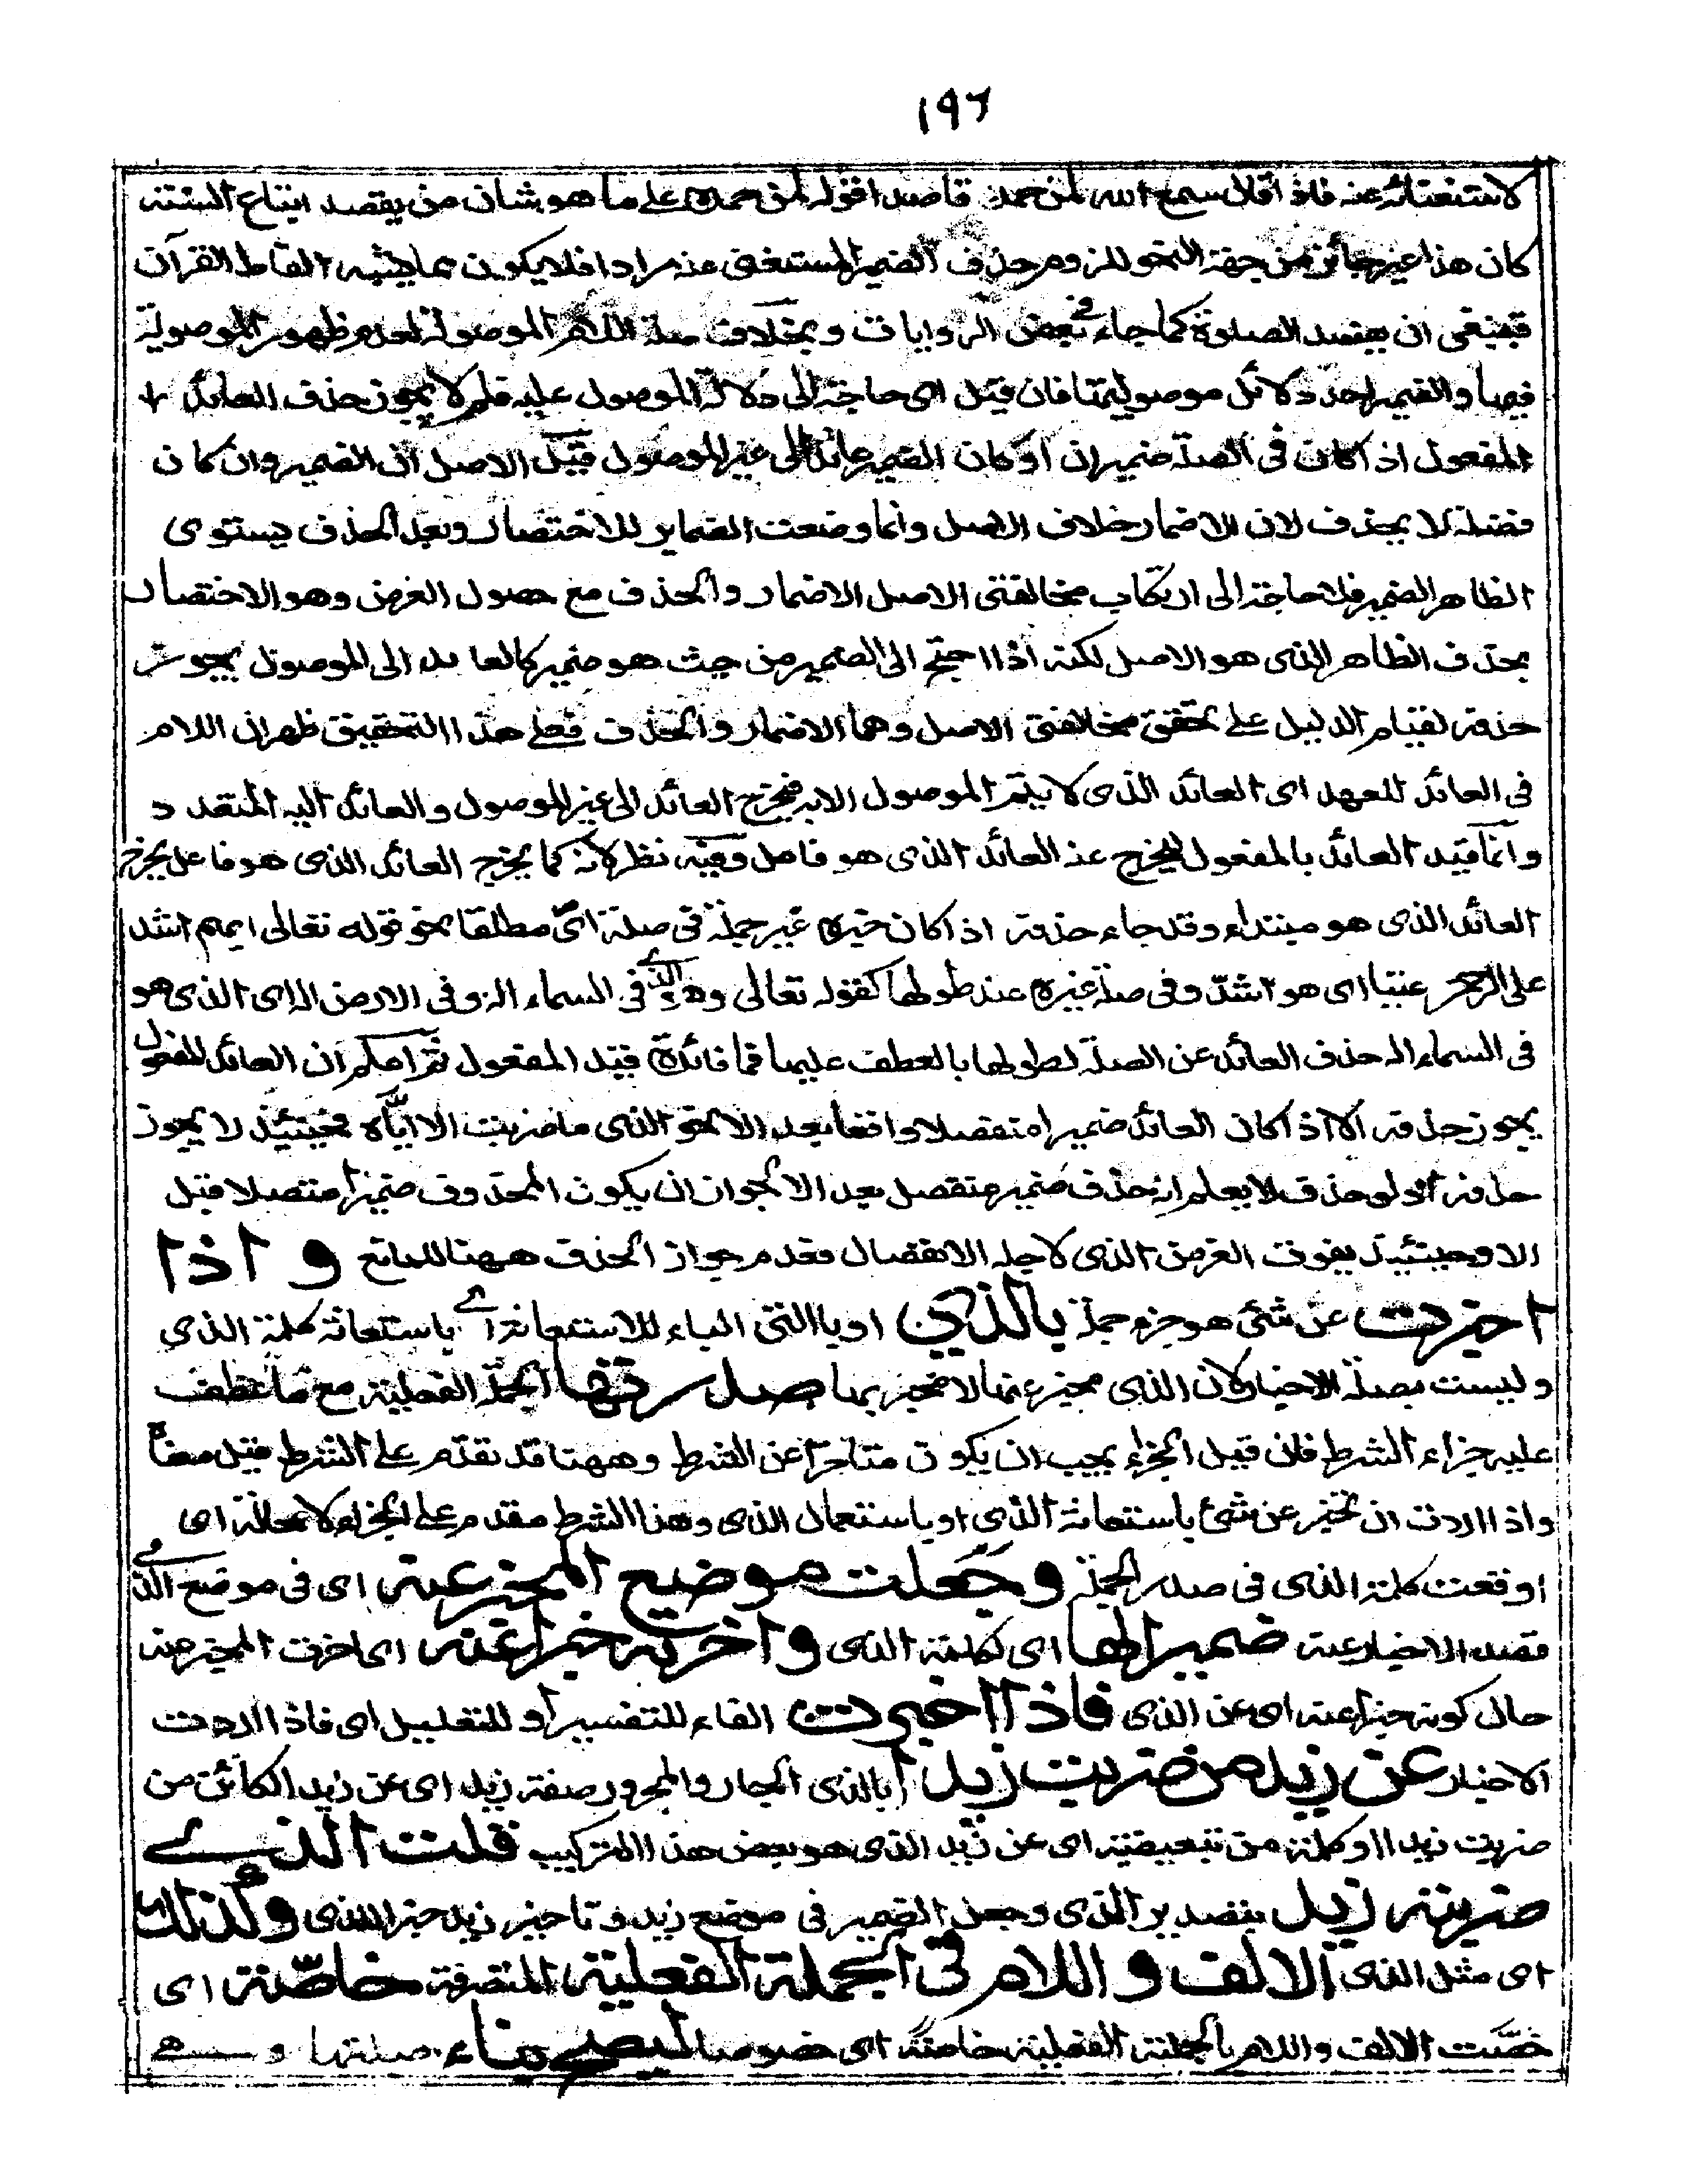 ١٩٦
لاستغنائه عنه فاذا قال سمع الله لمن حمده قاصدا قوله لمن حمده على ما هو شان من يقصد اتباع السنة
كان هذا غير جائز من جهة النحو للزوم حذف الضمير المستغنى عنه مرادا فلا يكون مما يشبه الفاظ القرآن
فينبغى ان يقصد الصلوة كما جاء فى بعض الروايات وبخلاف صلة اللام الموصولة لعدم ظهور الموصولية
فيها والضمير احد دلائل موصوليتها فان قيل اى حاجة الى دلالة الموصول عليه فلم لا يجوز حذف العائد
المفعول اذا كان فى الصلة ضميران او كان الضمير عائدا الى غير الموصول قيل الاصل ان الضمير وان كان
فضلة لا يحذف لان الاضمار خلاف الاصل وانما وضعت الضماير للاختصار وبعد الحذف يستوى
الظاهر الضمير فلا حاجة الى ارتكاب مخالفتى الاصل الاضمار والحذف مع حصول الغرض وهو الاختصار
بحذف الظاهر الذى هو الاصل لكنه اذا احتيج الى الضمير من حيث هو ضمير كالعايد الى الموصول يجوز
حذفه لقيام الدليل على تحقق مخالفتى الاصل وهما الاضمار والحذف فعلى هذا التحقيق ظهر ان اللام
فى العائد للعهد اى العائد الذى لا يتم الموصول الا به فيخرج العائد الى غير الموصول والعائد اليه المتعدد
وانما قيد العائد بالمفعول ليخرج عنه العائد الذى هو فاعل وفيه نظر لانه كما يخرج العائد الذى هو فاعل يخرج
العائد الذى هو مبتداء وقد جاء حذفه اذا كان خبره غير جملة فى صلة اىّ مطلقا نحو قوله تعالى ايهم اشد
على الرحمن عتيا اى هو اشد وفى صلة غيره عند طولها كقوله تعالى وهو الذى فى السماء اله وفى الارض اله اى الذى هو
فى السماء اله حذف العائد عن الصلة لطولها بالعطف عليها فما فائدة قيد المفعول ثم اعلم ان العائد المفعول
يجوز حذفه الا اذا كان العائد ضميرا منفصلا واقعا بعد الا نحو الذى ما ضربت الا اياه فحينئذ لا يجوز
حذفه اذ لو حذف لا يعلم انه حذف ضمير منفصل بعد الا لجواز ان يكون المحذوف ضميرا متصلا قبل
الا وحينئذ يفوت الغرض الذى لاجله الانفصال فعدم جواز الحذف ههنا للمانع واذا
اخبرت عن شئ هو جزء جملة بالذى او بالتى الباء للاستعانة اى باستعانة كلمة الذى
وليست بصلة الاخبار لان الذى مخبر عنها لا مخبر بها صدرتها الجملة الفعلية مع ما عطف
عليه جزاء الشرط فان قيل الجزاء يجب ان يكون متاخرا عن الشرط وههنا قد تقدم على الشرط قيل معناه
واذا اردت ان تخبر عن شئ باستعانة الذى او باستعمال الذى وهذا الشرط مقدم على الجزاء لا محالة اى
اوقعت كلمة الذى فى صدر الجملة وجعلت موضع المخبر عنه اى فى موضع الذى
قصد الاخبار عنه ضميرا لها اى لكلمة الذى واخرته خبرا عنه اى اخرت المخبر عنه
حال كونه خبرا عنه اى عن الذى فاذا اخبرت الفاء للتفسير او للتعليل اى فاذا اردت
الاخبار عن زيد من ضربت زيدا بالذى الجار والمجرور صفة زيد اى عن زيد الكائن من
ضربت زيدا او كلمة من تبعيضية اى عن زيد الذى هو بعض هذا التركيب قلت الذى
ضربته زيد بتصدير الذى وجعل الضمير فى موضع زيد وتاخير زيد خبرا للذى وكذلك
اى مثل الذى الالف واللام فى الجملة الفعلية المتصرفة خاصّة اى
خصّت الالف واللام بالجملة الفعلية خاصة اى خصوصا ليصح بناء صلتها وهى